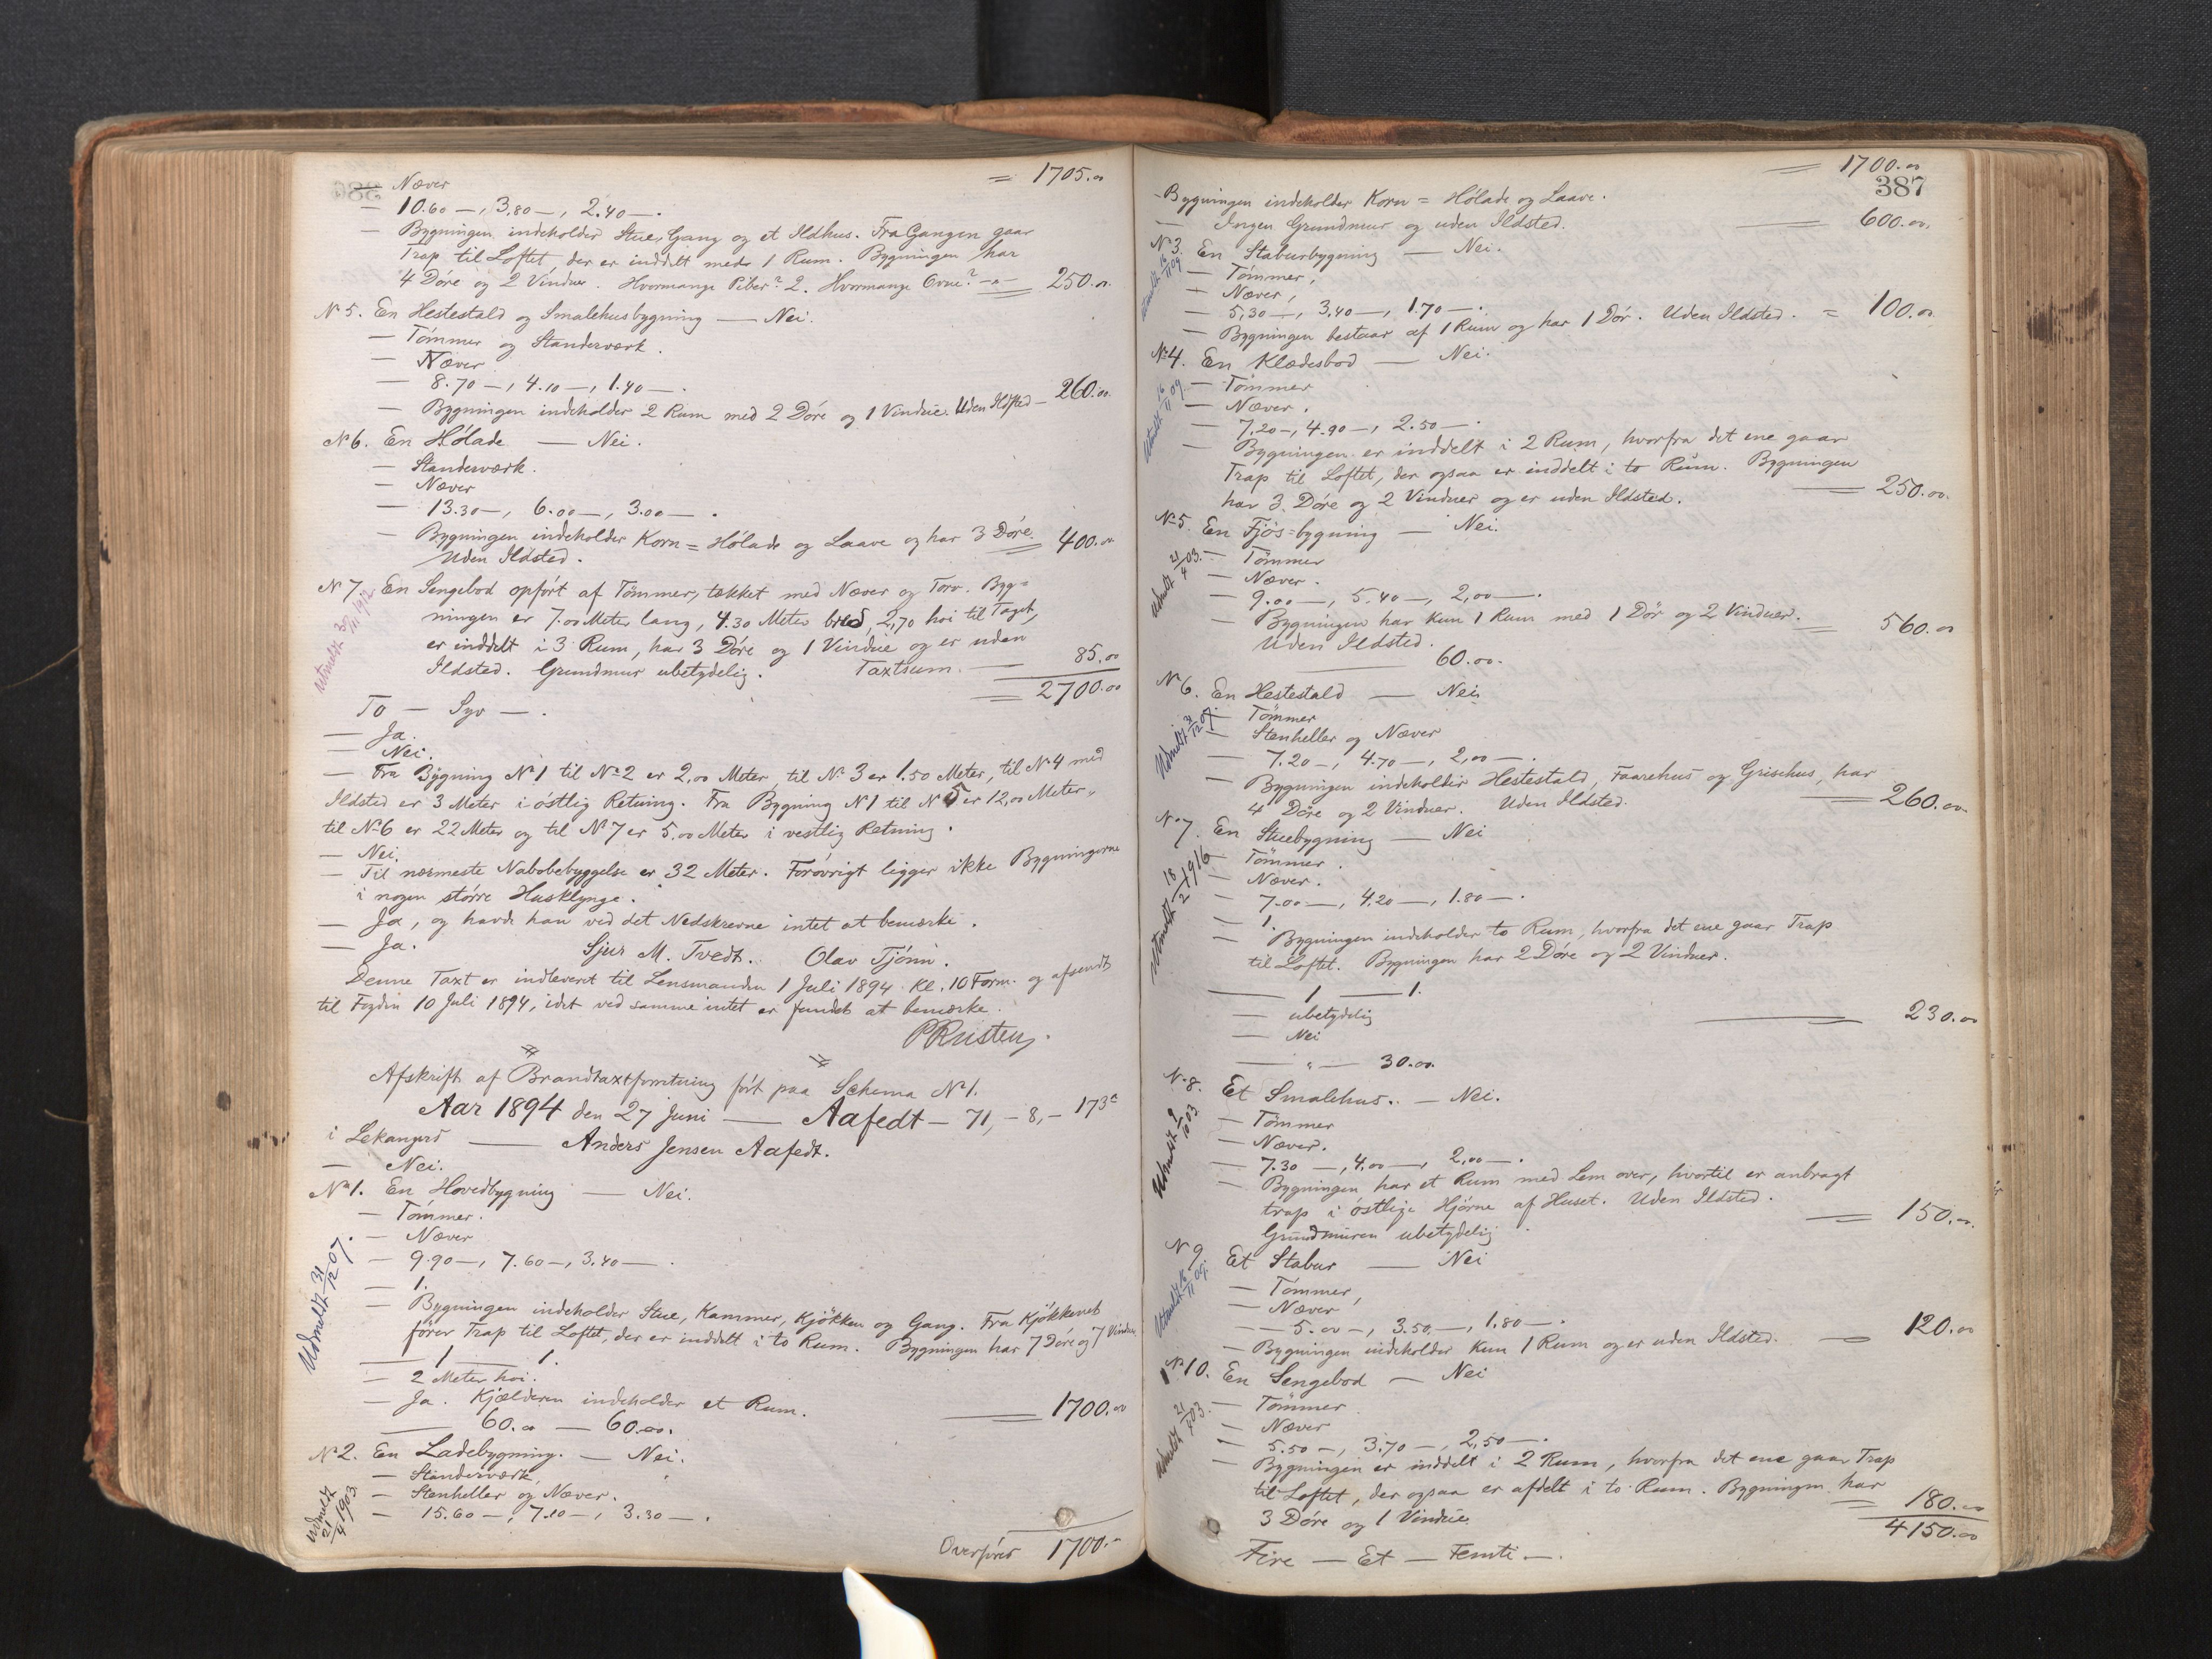 — Næver = 1705.00
— 10.60 —, 3,80 —, 2.40 —.
— Bygningen indeholder Stue, Gang og et Ildhus. Fra Gangen gaar
Trap til Loftet, der er inddelt med 1 Rum. Bygningen har
4 Döre og 2 Vindue. Hvormange Piber? 2. Hvormange Ovne? —"— = 250.00
No 5. En Hestestald og Smalehusbygning — Nei.
— Tömmer og Standerværk.
— Næver
— 8.70 —, 4.10 —, 1.40 —.
— Bygningen indeholder 2 Rum med 2 Döre og 1 Vindue. Uden Ildsted — 260.00
No 6. En Hölade — Nei.
— Standerværk.
— Næver
— 13.30 —, 6.00 —, 3.00 —.
— Bygningen indeholder Korn = Hölade og Laave og har 3 Döre. = 400.00
Uden Ildsted.
Utmeldt 30/III 1912
No 7. En Sengebod opfört af Tömmer, tækket med Næver og Torv. Byg=
ningen er 7.00 Meter lang, 4.30 Meter bred, 2,70 höi til Taget,
er inddelt i 3 Rum, har 3 Döre og 1 Vindue og er uden
Ildsted. Grundmur ubetydelig. Taxtsum — 85.00
= 2700.00
To — Syv —.
— Ja.
— Nei.
— Fra Bygning No 1 til No 2 er 2,00 Meter, til No 3 er 1.50 Meter, til No 4 med
Ildsted er 3 Meter i östlig Retning. Fra Bygning No 1 til No 5 er 12,00 Meter,
til No 6 er 22 Meter og til No 7 er 5.00 Meter i vestlig Retning.
— Nei.
— Til nærmeste Nabobebyggelse er 32 Meter. Forövrigt ligger ikke Bygningerne
i nogen större Husklynge.
— Ja, og havde han ved det Nedskrevne intet at bemærke.
— Ja. Sjur M. Tvedt. Olav Tjönn.
Denne Taxt er indleveret til Lensmanden 1 Juli 1894 Kl. 10 Form. og afsendt
til Fogden 10 Juli 1894, idet ved samme intet er fundet at bemærke.
Afskrift af Brandtaxtforretning fört paa Schema No 1.
Aar 1894 den 27 Juni — Aafedt — 71, — 8, — 173a
i Lekanger — Anders Jensen Aafedt.
— Nei.
No 1. En Hovedbygning — Nei.
— Tömmer.
— Næver
Udmeldt 31/12 07.
— 9.90 —, 7.60 —, 3.40 —.
— 1.
— Bygningen indeholder Stue, Kammer, Kjökken og Gang. Fra Kjökkenet
förer Trap til Loftet, der er inddelt i to Rum. Bygningen har 7 Döre og 7 Vindue
— 1 — 1.
— 2 Meter höi.
— Ja. Kjælderen indeholder et Rum. = 1700.00
— 60.00 — 60.00.
No 2. En Ladebygning. — Nei.
Udmeldt 21/4 1903.
— Standerværk,
— Stenheller og Næver.
— 15.60 —, 7.10 —, 3.30 —.
Overföres 1700.—
= 1700.00
387
— Bygningen indeholder Korn = Hölade og Laave.
— Ingen Grundmur og uden Ildsted. = 600.00.
No 3. En Staburbygning — Nei.
Utmeldt 16/II 09
— Tömmer,
— Næver,
— 5,30 —, 3,40 —, 1.70 —.
— Bygningen bestaar af 1 Rum og har 1 Dör. Uden Ildsted. = 100.00
No 4. En Klædesbod — Nei.
Utmeldt 16/II 09.
— Tömmer
— Næver.
— 7.20 —, 4.90 —, 2.50 —.
— Bygningen er inddelt i 2 Rum, hvorfra det ene gaar
Trap til Loftet, der ogsaa er inddelt i to Rum. Bygningen
har 3 Döre og 2 Vinduer og er uden Ildsted. = 250.00.
No 5. En Fjös=bygning — Nei.
Udmeldt 21/4 03.
— Tömmer
— Næver.
— 9.00 —, 5.40 —, 2,00 —.
— Bygningen har kun 1 Rum med 1 Dör og 2 Vinduer. = 560.00
Uden Ildsted.
— 60.00.
No 6. En Hestestald — Nei
Udmeldt 31/12 07.
— Tömmer
— Stenheller og Næver
— 7.20 —, 4.70 —, 2,00 —.
— Bygningen indeholder Hestestald, Faarehus og Grisehus, har
4 Döre og 2 Vinduer. Uden Ildsted. = 260.00
No 7. En Stuebygning — Nei
Utmeldt 18/2 1916
— Tömmer.
— Næver.
— 7.00 —, 4.20 —, 1.80 —.
— 1.
— Bygningen indeholder to Rum, hvorfra det ene gaar Trap
til Loftet. Bygningen har 2 Döre og 2 Vinduer.
— 1 — 1.
— ubetydelig = 230.00
— Nei
— " — 30.00.
No 8. Et Smalehus. — Nei.
— Tömmer
— Næver.
— 7.30 —, 4.00 —, 2,00 —.
— Bygningen har et Rum med Lem over, hvortil er anbragt
trap i östlige Hjörne af Huset. Uden Ildsted. = 150.—
Grundmuren ubetydelig.
No 9. Et Stabur — Nei
Utmeldt 16/II 09.
— Tömmer,
— Næver
— 5.00 —, 3.50 —, 1.80 —.
— Bygningen indeholder kun 1 Rum og er uden Ildsted. = 120.00
No 10. En Sengebod — Nei
Udmeldt 21/4 03.
— Tömmer
— Næver
— 5.50 —, 3.70 —, 2,50 —.
— Bygningen er inddelt i 2 Rum, hvorfra det ene gaar Trap
til Loftet, der ogsaa er afdelt i to Rum. Bygningen har
3 Döre og 1 Vindue = 180.00
4150.00
Fire — Et — Femti —.